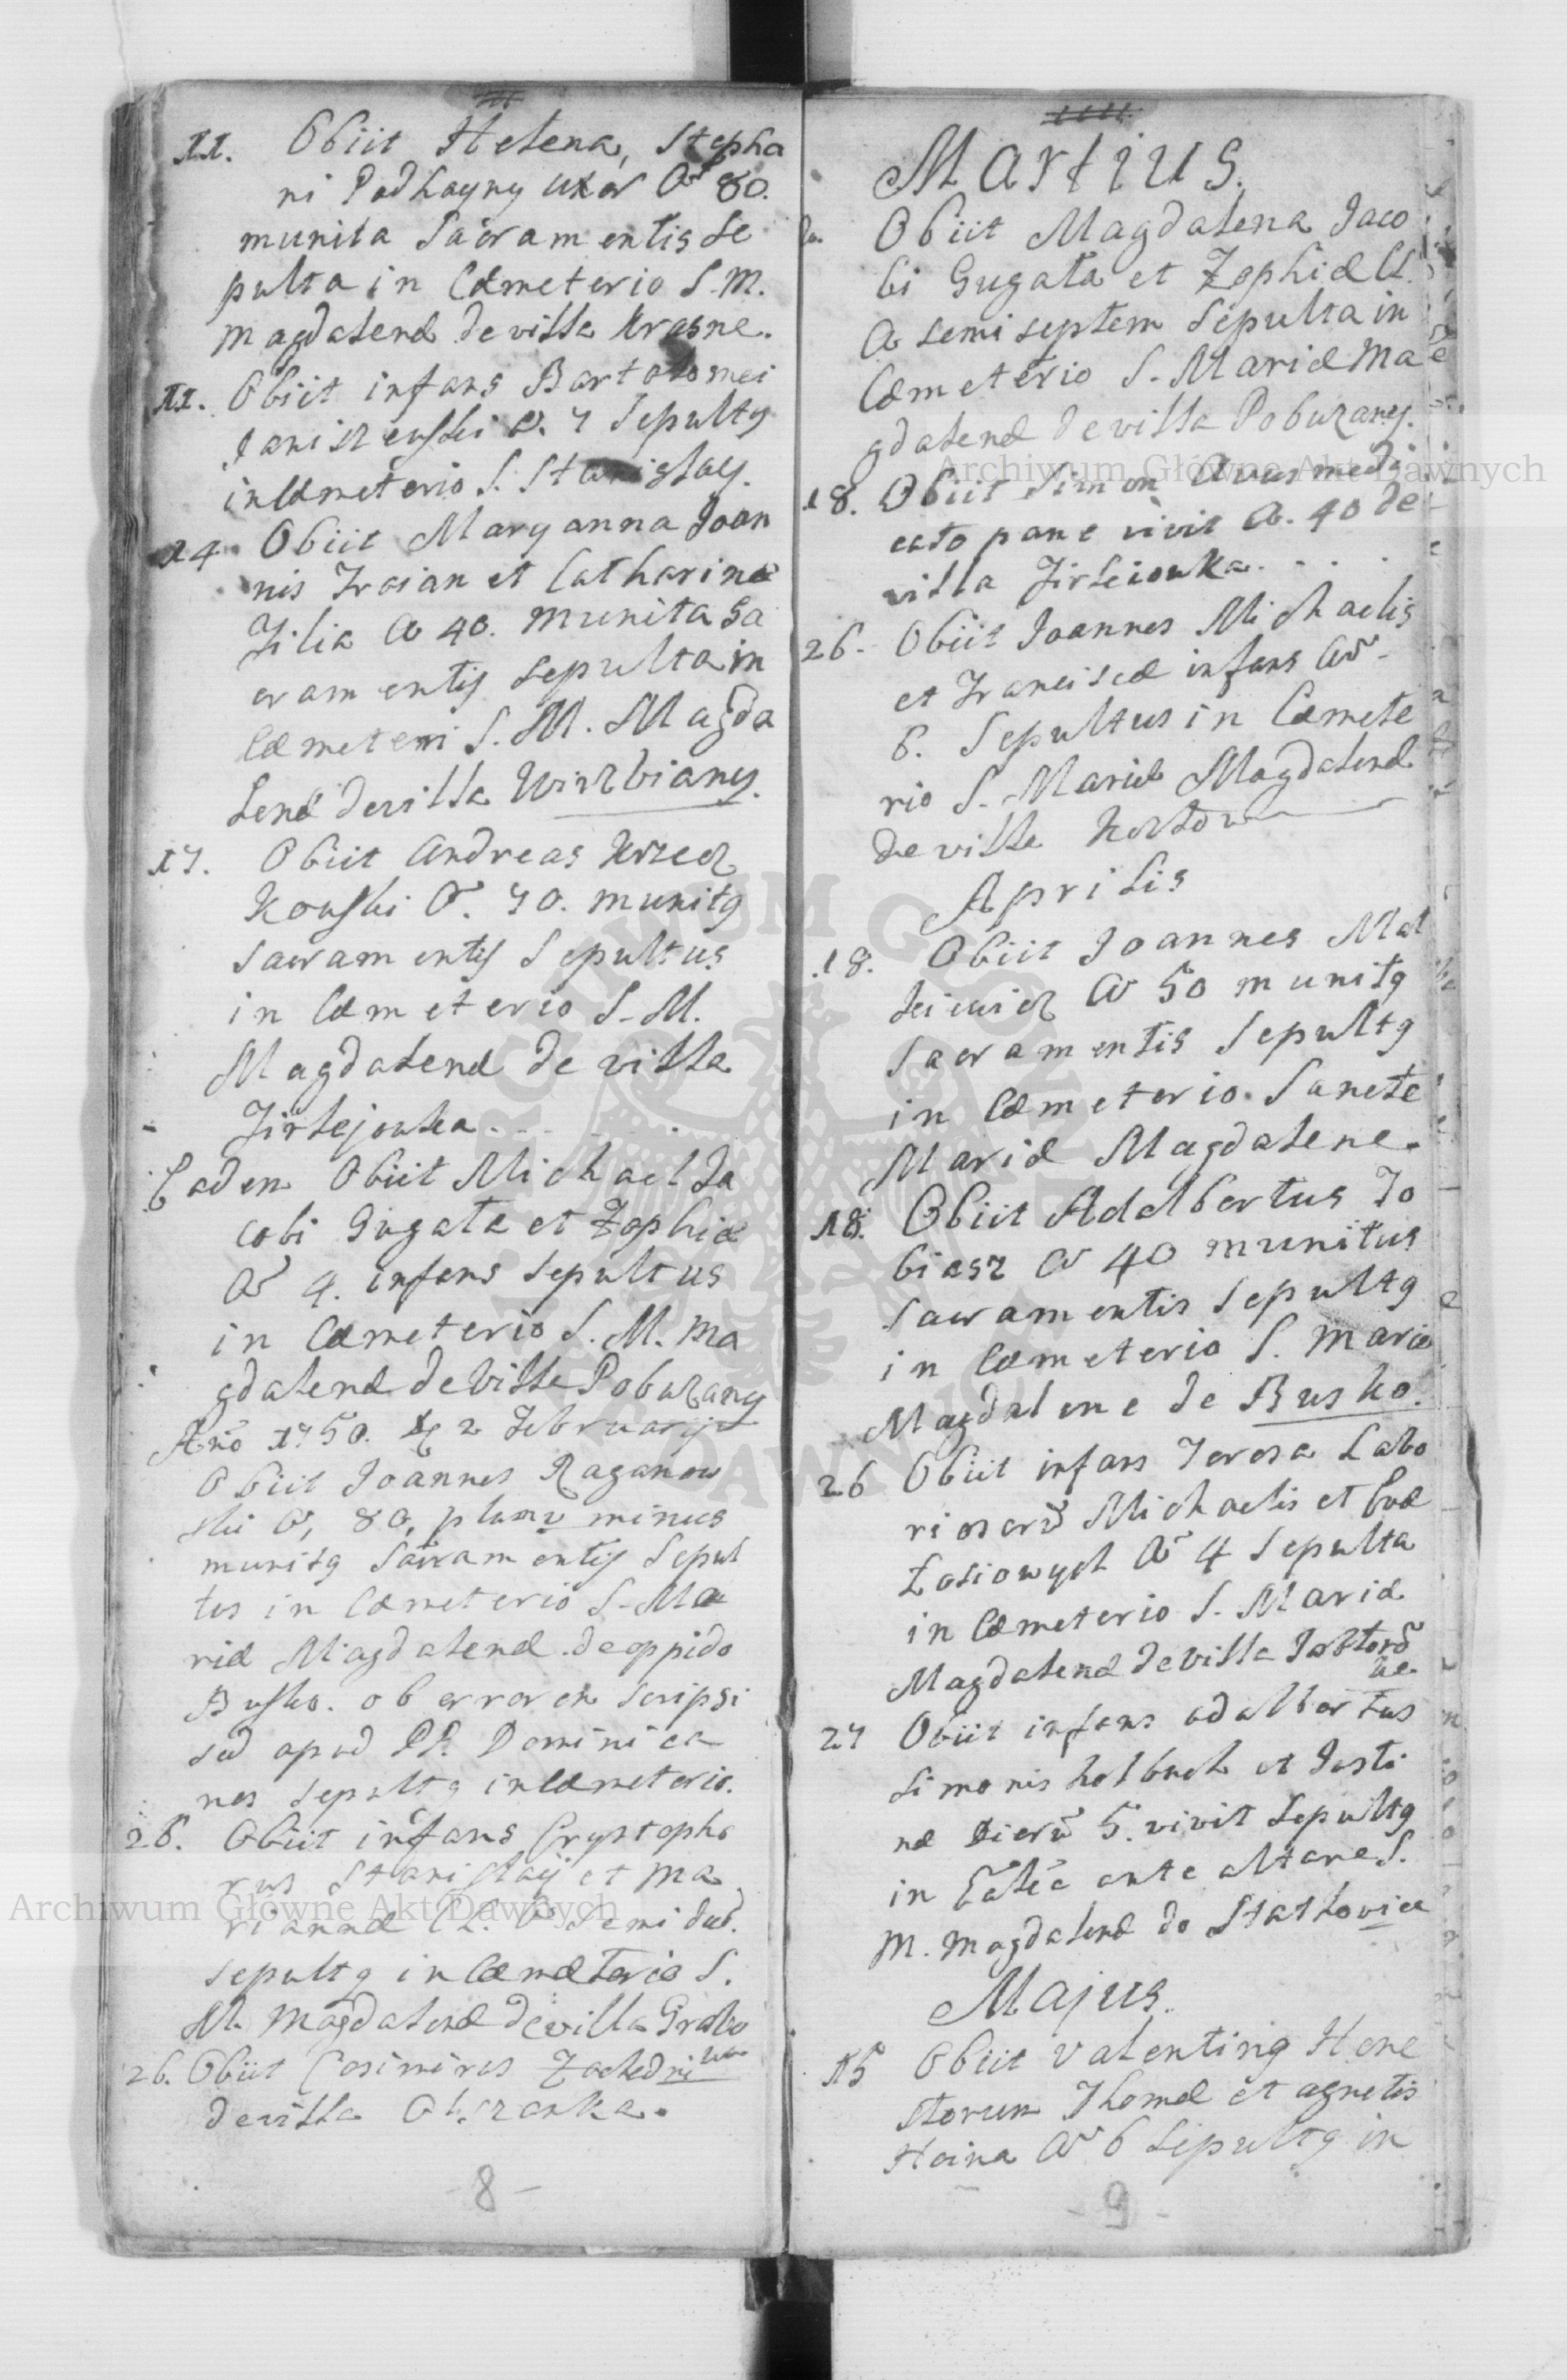 11. Obiit Helena, Stepha
ni Podhayny uxor A 80.
munita Sacramentis Se
pulta in Cæmeterio S. M.
Magdalenæ de villa Krasne.
11. Obiit infans Bartolomei
Janiszewski A. 7 Sepultq
in Cæmeterio S. Stanislay.
14 Obiit Maryanna Joan
nis Trojan et Catharinæ
Filia A 40. munita Sa
cramentis sepulta in
Cæmeteri S. M. Magda
lenæ de villa Wirzbiany.
17. Obiit Andreas Krzecz
kowski A. 70. munitq
sacramentis Sepultus
in Cæmeterio S. M.
Magdalenæ de villa
Firlejowka
Eadem Obiit Michael Ja
cobi Gugala et Zophiæ
A 4. infans sepultus
in Cæmeterio S. M. Ma
gdalenæ de Villa Pobuzany
Año 1750. 2 Februarij
Obiit Joannes Raganow
ski A, 80, plus v minus
munitq Sacramentis Sepul
tus in Cæmeterio S. Ma
riæ Magdalenæ de oppido
Busko. ob errorem scripsi
sed apud PP. Dominica
nos sepultq in Cæmeterio.
26. Obiit infans Crystopho
rus Stanislay et Ma
riannæ A semi
sepultq in Cæmæterio S.
M. Magdalenæ de villa Grabo
wa
26. Obiit Casimirus
de villa
-8-
Martius.
Obiit Magdalena Jaco
bi Gugala et Zophiæ
A semi septem Sepulta in
Cæmeterio S. Mariæ Ma
gdalenæ de villa Pobuzany.
18. Obiit Simon Avus medi
cato pane vivit A. 40 de
villa Firleiowka
26. Obiit Joannes Michaelis
et Franciscæ infans A
6. Sepultus in Cæmete
rio S. Mariæ Magdalenæ
de villa
Aprilis
18. Obiit Joannes Mat
A 50 munitq
Sacramentis Sepultq
in Cæmeterio Sancte
Mariæ Magdalene.
18. Obiit Adalbertus To
biasz A 40 munitus
Sacramentis Sepultq
in Cæmeterio S. Mariæ
Magdalene de Busko.
26 Obiit infans Teresa Labo
riosorũ Michaelis et Evæ
Łosiowych A 4 Sepulta
in Cæmeterio S. Mariæ
Magdalenæ de villa Jabłonõ
ne
27 Obiit infans adalbertus
Simonis et Justi
næ Dierũ 5. vivit Sepultq
in ante altare S.
M. Magdalenæ de
Majus.
15 Obiit Valentinq Hone
storum Thomæ et agnetis
A 6 Sepultq in
-9-
Archiwum Główne Akt Dawnych
Archiwum Główne Akt Dawnych
ARCHIWUM GŁÓWNE AKT DAWNYCH